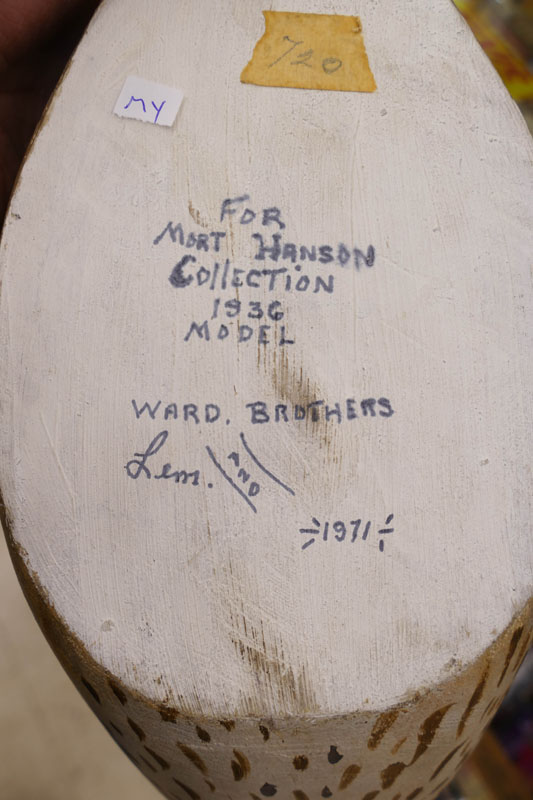 720
MY
FOR
MORT HANSON
COllECTION
1936
MODEL
WARD. BROTHERS
Lem.
AND
1971